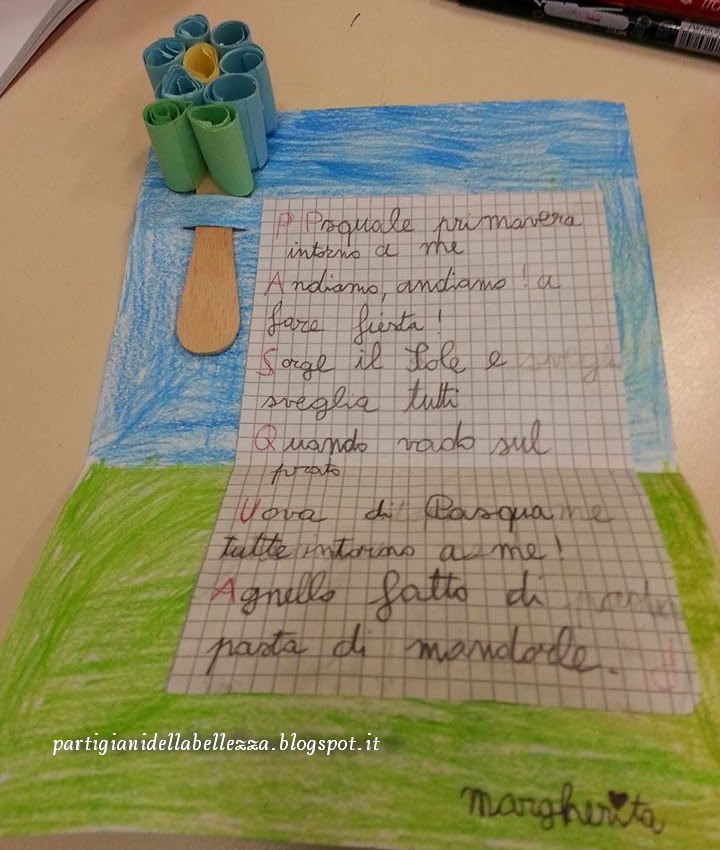 P Pasquale primavera
intorno a me
Andiamo, andiamo! a
fare fiesta!
Sorge il Sole e
sveglia tutti
Quando vado sul
prato
Uova di Pasqua
tutte intorno a me!
Agnello fatto di
pasta di mandorle.
partigianidellabellezza.blogspot.it
margherita